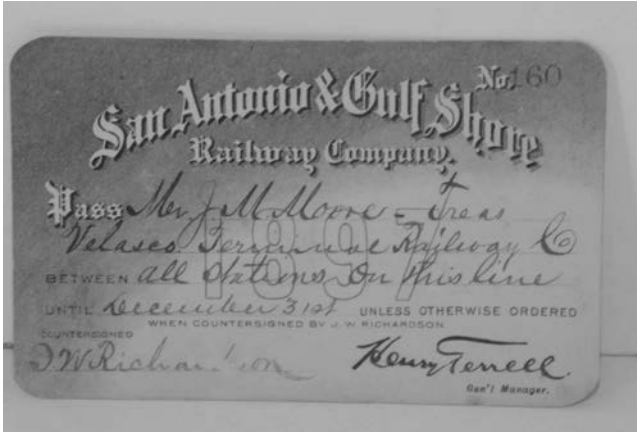 No. 160
San Antonio & Gulf Shore
Railway Company.
Pass Mr. J M Moore - Treas
Velasco Terminal Railway Co
BETWEEN all Stations On this line
1897
UNTIL December 31st UNLESS OTHERWISE ORDERED
WHEN COUNTERSIGNED BY J. W. RICHARDSON
COUNTERSIGNED
J. W. Richardson Henry Terrell
Gen'l Manager.